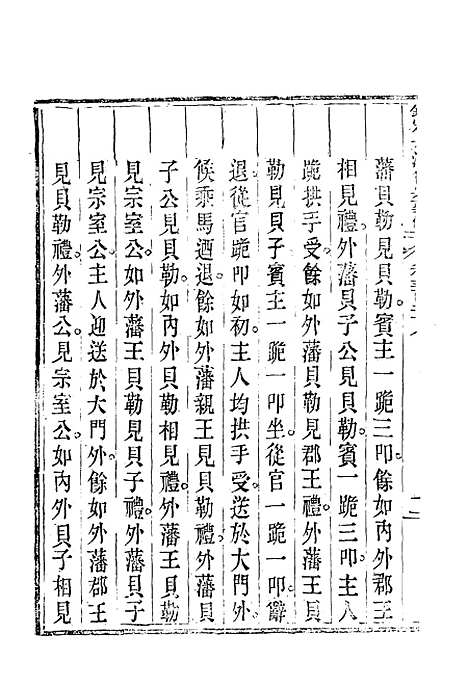 藩貝勒見貝勒賓主一跪三叩餘如內外郡王
相見禮外藩貝子公見貝勒賓一跪三叩主人
跪拱手受餘如外藩貝勒見郡王禮外藩王貝
勒見貝子賓主一跪一叩坐從官一跪一叩辭
退從官跪叩如初主人均拱手受送於大門外
候乘馬迺退餘如外藩親王見貝勒禮外藩貝
子公見貝勒如內外貝勒相見禮外藩王貝勒
見宗室公如外藩王貝勒見貝子禮外藩貝子
見宗室公主人迎送於大門外餘如外藩郡王
見貝勒禮外藩公見宗室公如內外貝子相見